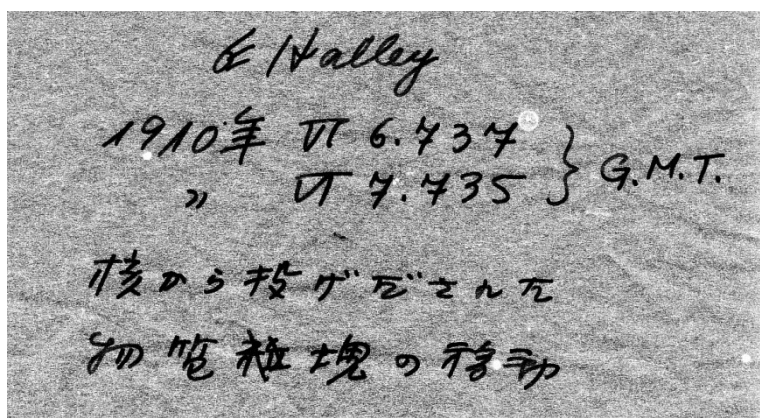 E Halley
1910年 VI 6.737
〃 VI 7.735 } G.M.T.
核から投げだされた
物質粒塊の移動